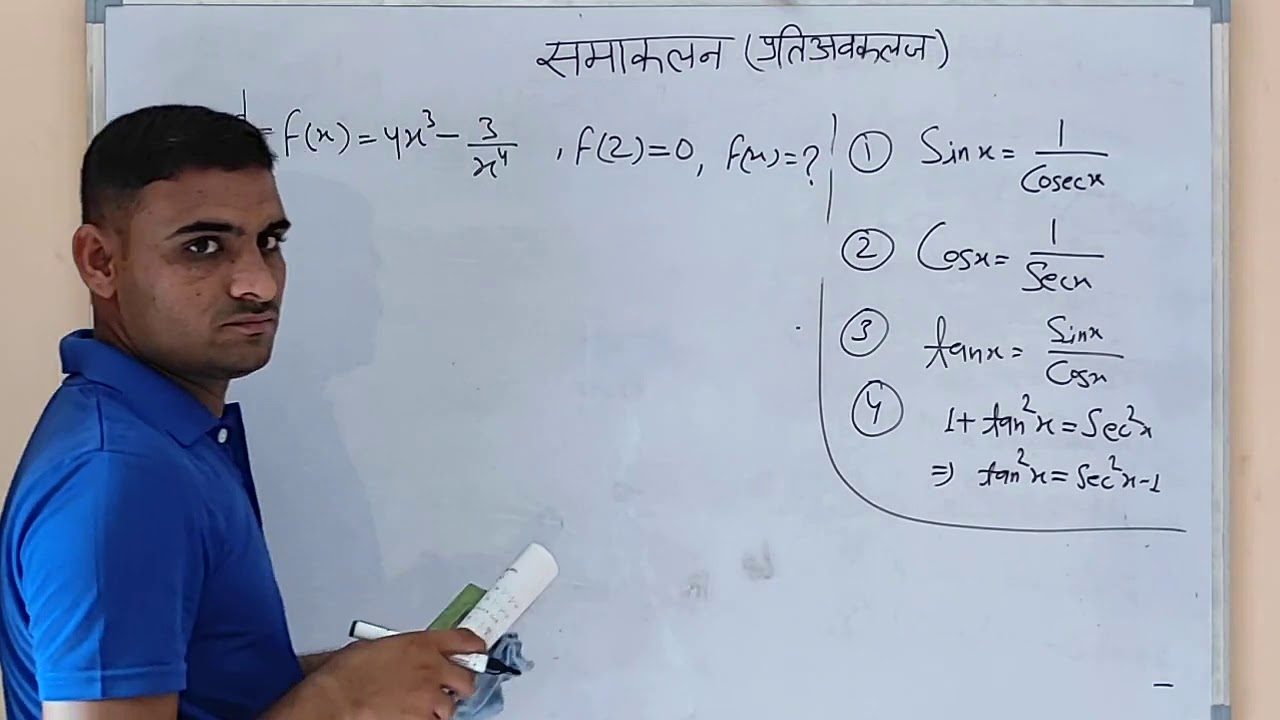 समाकलन (प्रतिअवकलज)
f(x) = 4x³ - 3/x⁴ , f(2)=0, f(x)=?
① Sinx = 1/Cosecx
② Cosx = 1/Secx
③ tanx = Sinx/Cosx
④ 1+tan²x = Sec²x
⇒ tan²x = Sec²x-1